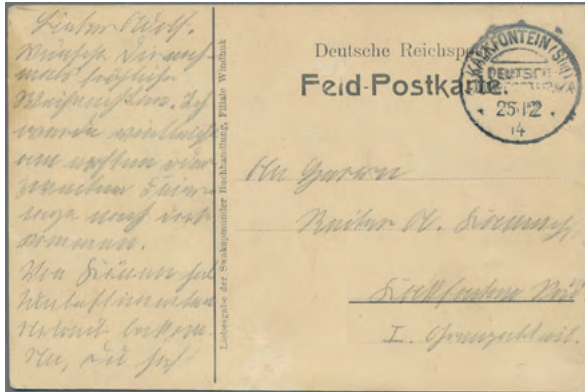 Lieber Adolf.
Wünsche Dir noch-
mals fröhliche
Weihnachten. Ich
werde vielleicht
am ersten oder
zweiten Feier-
tage nach dort
kommen.
Von
unbestimmten
Urlaub bekom-
Liebesgabe der Swakopmunder Buchhandlung, Filiale Windhuk
Deutsche Reichspost
Feld-Postkarte.
KALKFONTEIN (SÜD)
DEUTSCH-
25.12
14
An Herrn
Reiter
Kalkfontein Süd
I.